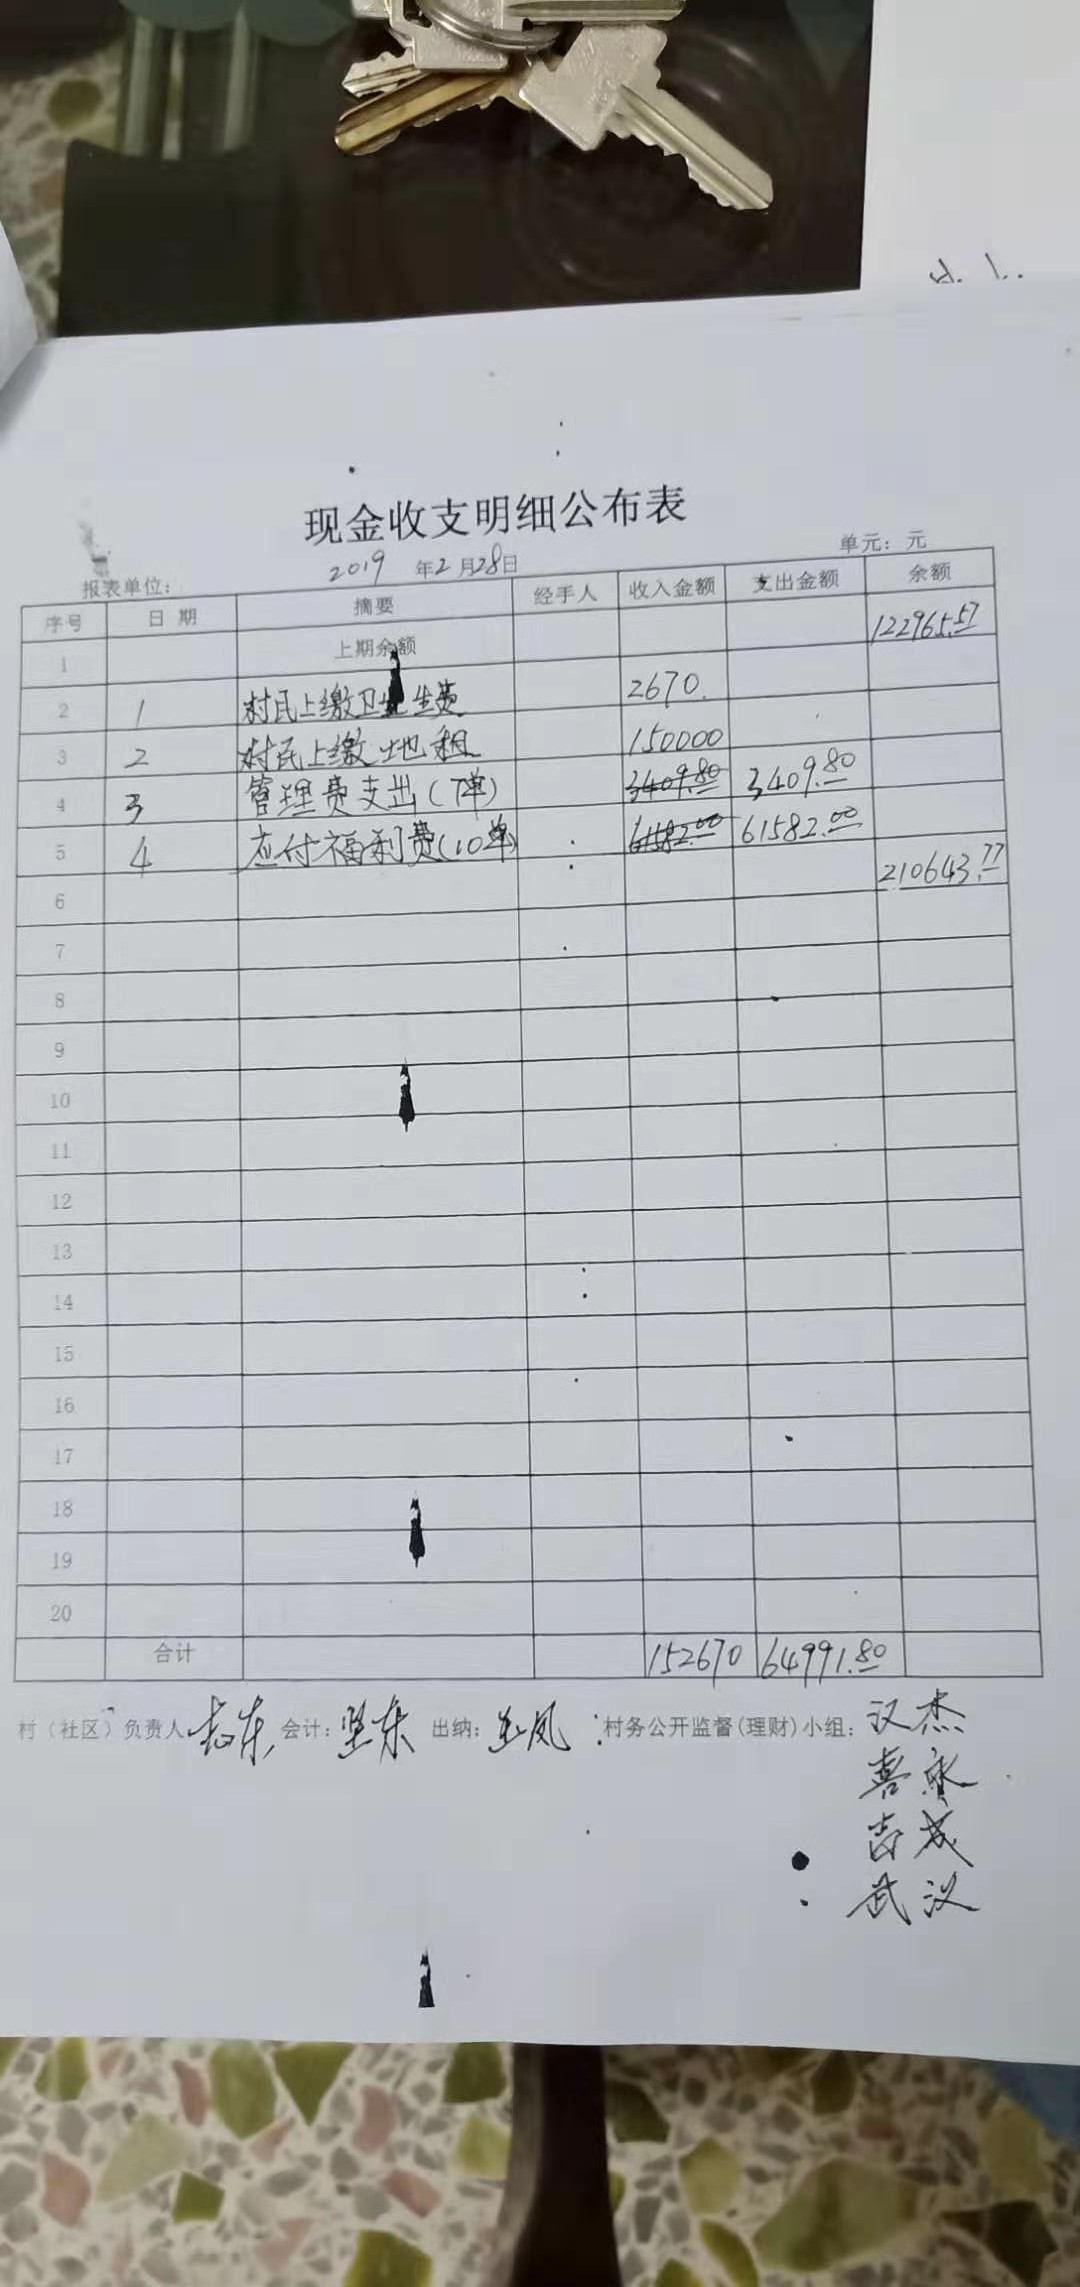 现金收支明细公布表
报表单位： 2019 年2月28日 单元：元
序号 日 期 摘要 经手人 收入金额 支出金额 余额
1 上期余额 122965.57
2 1 村民上缴卫生费 2670.
3 2 村民上缴土地租 150000
4 3 管理费支出(7单) 3409.80 3409.80
5 4 应付福利费(10单) 61582.00 61582.00
210643.77
6
7
8
9
10
11
12
13
14
15
16
17
18
19
20
合计 152670 64991.80
村（社区）负责人 会计：坚东 出纳： 村务公开监督(理财)小组：汉杰
喜永
吉成
武汉